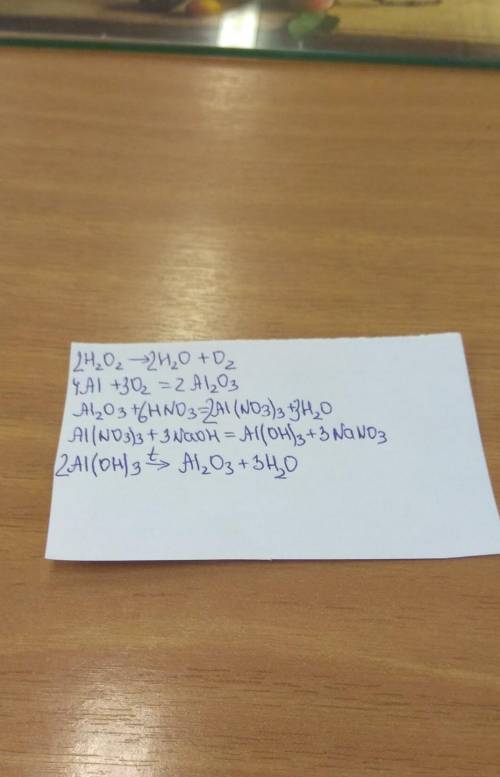 2H₂O₂ → 2H₂O + O₂
4Al + 3O₂ = 2Al₂O₃
Al₂O₃ + 6HNO₃ = 2Al(NO₃)₃ + 3H₂O
Al(NO₃)₃ + 3NaOH = Al(OH)₃ + 3NaNO₃
2Al(OH)₃ t→ Al₂O₃ + 3H₂O